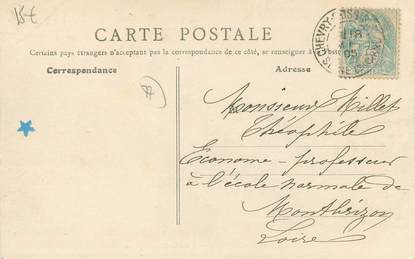 15€
CARTE POSTALE
Certains pays étrangers n'acceptant pas la correspondance de ce côté, se renseigner à
Correspondance
Adresse
CHEVRY-COSSIGNY
77
Monsieur Millet
Théophile
Econome - professeur
à l'école normale de
Montbrizon
Loire